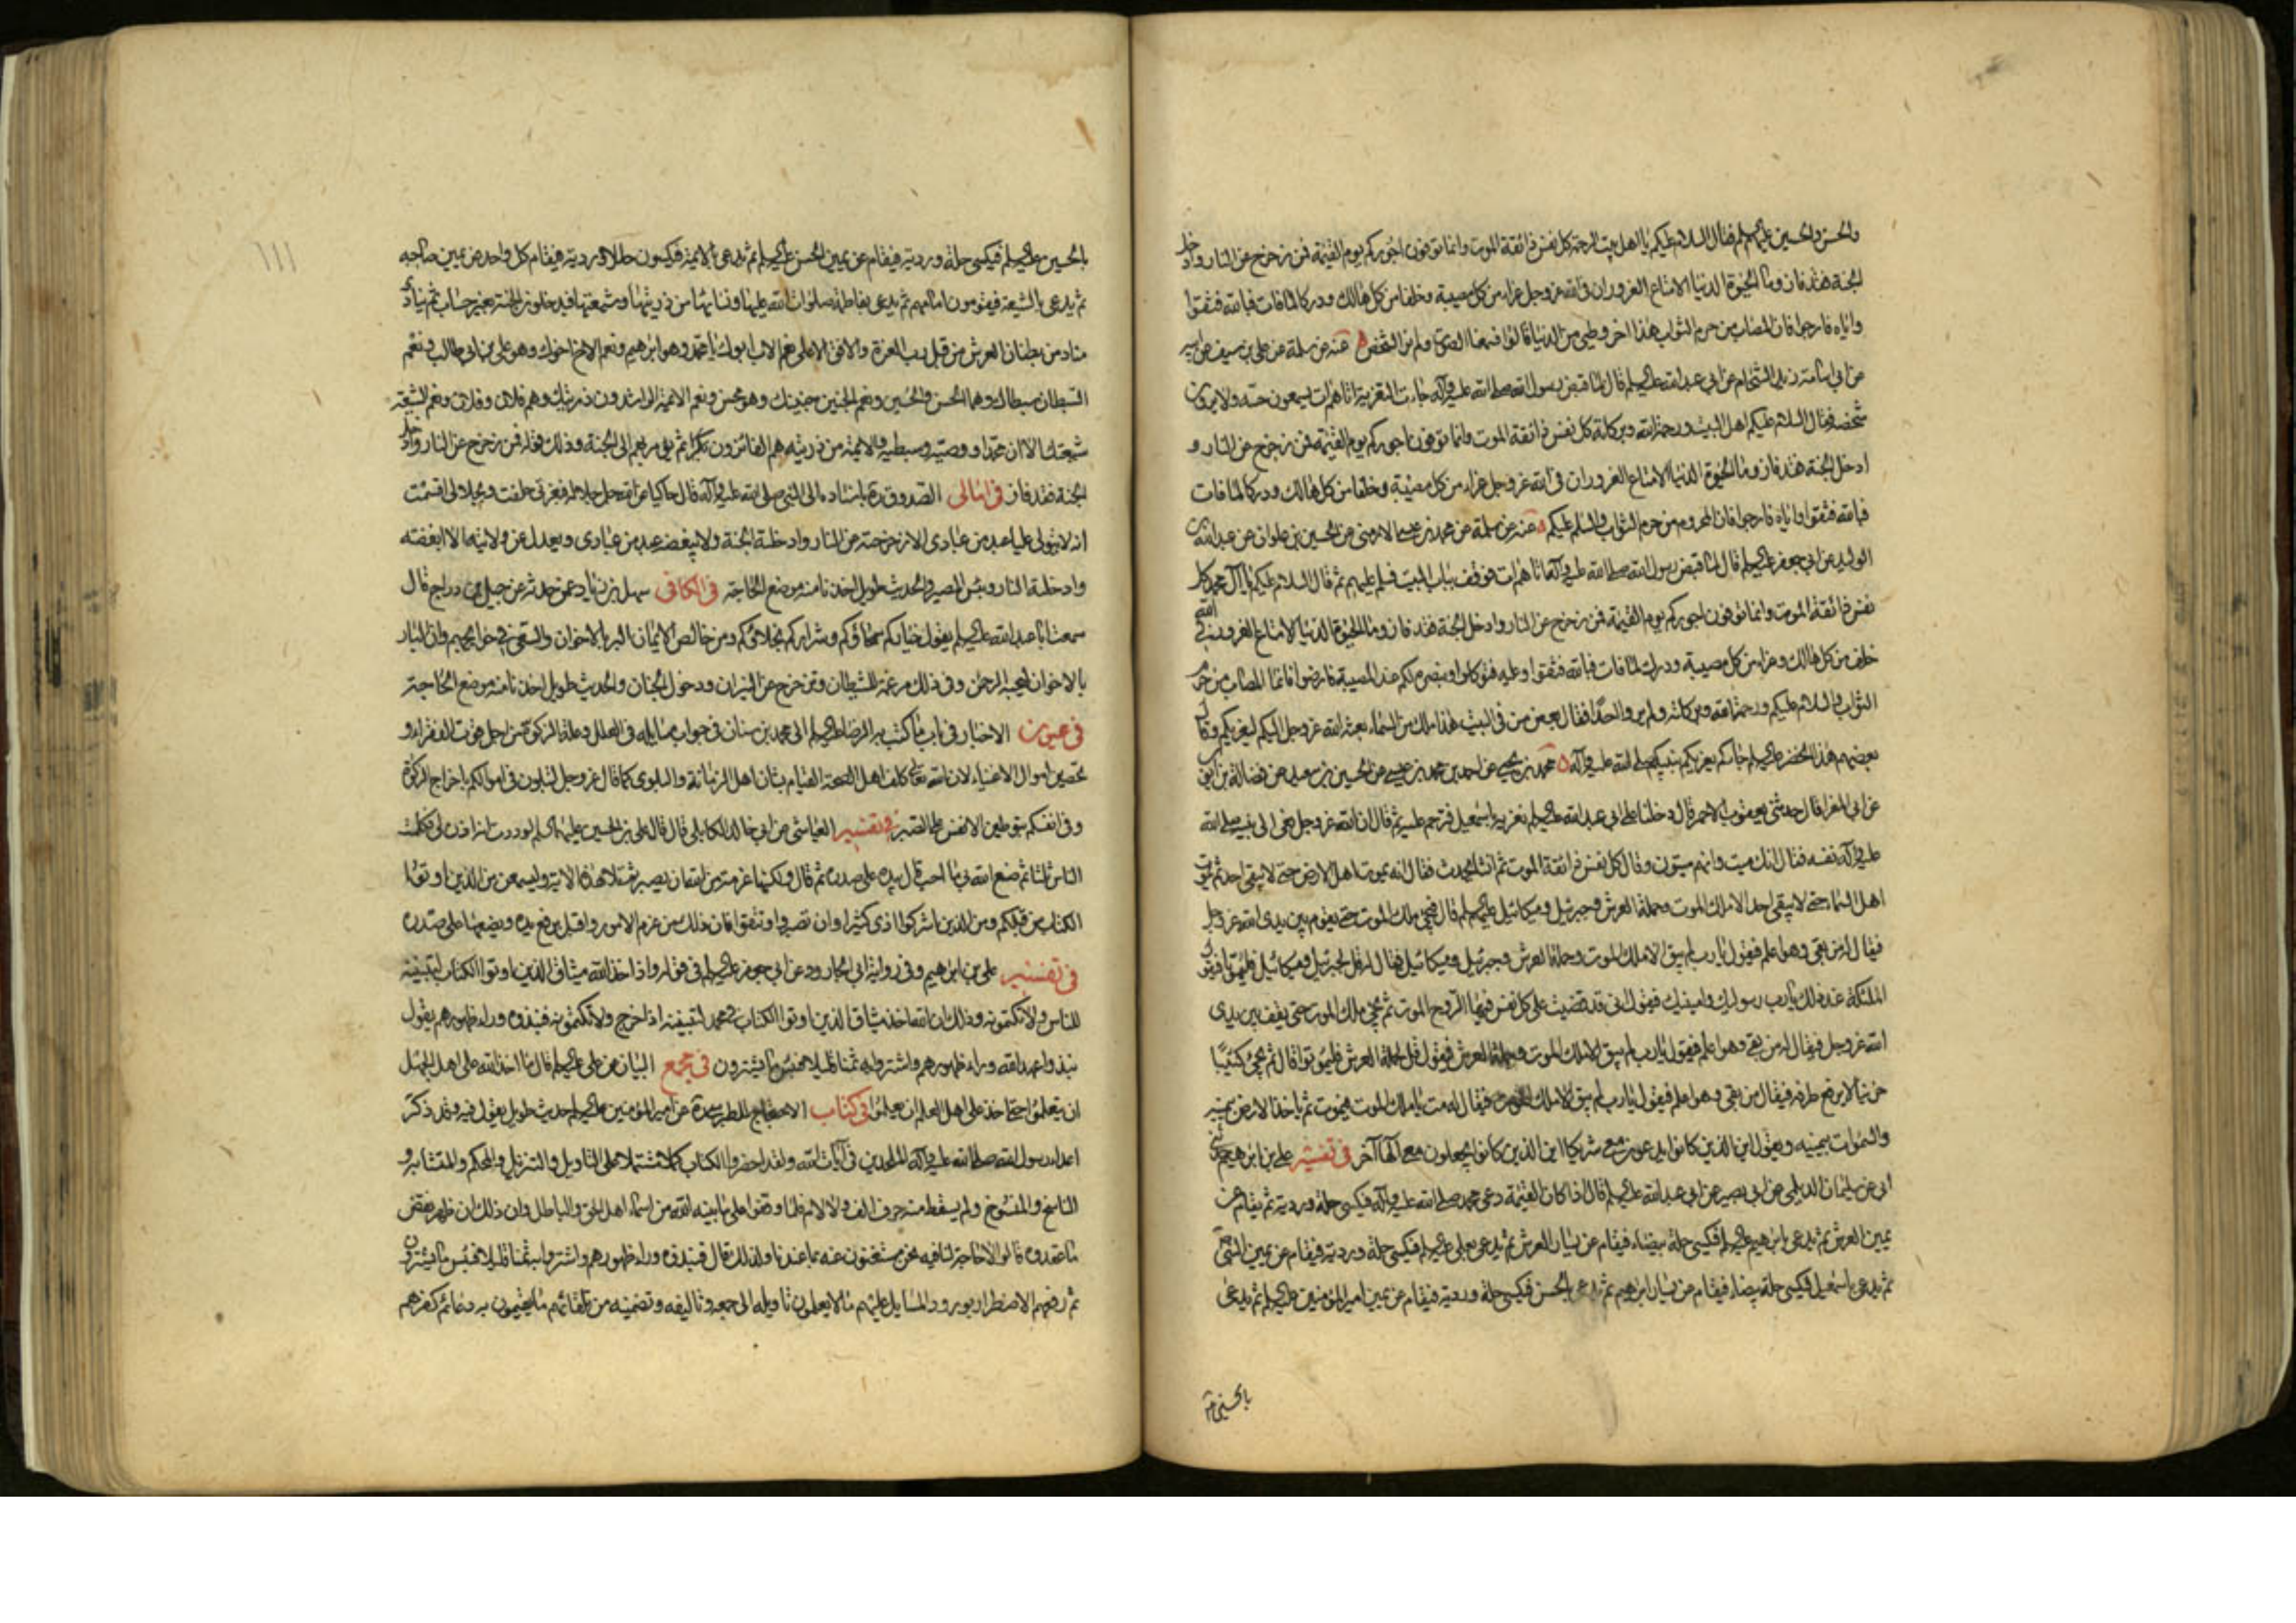 والحسن والحسين عليهم السلم فقال السلام عليكم يا اهل بيت الرحمة كل نفس ذائقة الموت وانما توفون اجوركم يوم القيمة فمن زحزح عن النار وادخل
الجنة فقد فاز وما الحيوة الدنيا الا متاع الغرور ان في الله عز وجل عزاء من كل مصيبة وخلفا من كل هالك ودركا لما فات فبالله فثقوا
واياه فارجوا فان المصاب من حرم الثواب هذا اخر وطيي من الدنيا قالوا فسمعنا الصوت ولم نر الشخص عنه عن سلمة عن علي بن سيف عن ابيه
عن ابي اسامة زيد الشحام عن ابي عبد الله عليه السلم قال لما قبض رسول الله صلى الله عليه وآله جاءت التعزية اتاهم ات يسمعون حسه ولا يرون
شخصه فقال السلام عليكم اهل البيت ورحمة الله وبركاته كل نفس ذائقة الموت وانما توفون اجوركم يوم القيمة فمن زحزح عن النار و
ادخل الجنة فقد فاز وما الحيوة الدنيا الا متاع الغرور ان في الله عز وجل عزاء من كل مصيبة وخلفا من كل هالك ودركا لما فات
فبالله فثقوا واياه فارجوا فان المحروم من حرم الثواب والسلم عليكم عنه عن سلمة عن محمد بن عيسى الارمني عن الحسين بن علوان عن عبد الله بن
الوليد عن ابي جعفر عليه السلم قال لما قبض رسول الله صلى الله عليه وآله اتاهم ات فوقف بباب البيت فسلم عليهم ثم قال السلام عليكم يا آل محمد كل
نفس ذائقة الموت وانما توفون اجوركم يوم القيمة فمن زحزح عن النار وادخل الجنة فقد فاز وما الحيوة الدنيا الا متاع الغرور في الله
خلف من كل هالك وعزاء من كل مصيبة ودرك لما فات فبالله فثقوا وعليه فتوكلوا وبنصره لكم عند المصيبة فارضوا فانما المصاب من حرم
الثواب والسلام عليكم ورحمة الله وبركاته ولم يروا احدا فقال بعض من في البيت هذا ملك من السماء بعثه الله عز وجل اليكم ليعزيكم وقال
بعضهم هذا الخضر عليه السلم جاءكم يعزيكم بنبيكم صلى الله عليه وآله محمد بن يحيى عن احمد بن محمد بن عيسى عن الحسين بن سعيد عن فضالة بن ايوب
عن ابي المغرا قال حدثني يعقوب الاحمر قال دخلنا على ابي عبد الله عليه السلم نعزيه باسمعيل فترحم عليه ثم قال ان الله عز وجل نعى الى نبيه صلى الله
عليه وآله نفسه فقال انك ميت وانهم ميتون وقال كل نفس ذائقة الموت ثم انشأ يحدث فقال انه يموت اهل الارض حتى لا يبقى احد ثم يموت
اهل السماء حتى لا يبقى احد الا ملك الموت وحملة العرش وجبرئيل وميكائيل عليهم السلم قال فيجئ ملك الموت حتى يقوم بين يدي الله عز وجل
فيقال له من بقى وهو اعلم فيقول يا رب لم يبق الا ملك الموت وحملة العرش وجبرئيل وميكائيل فيقال له قل لجبرئيل وميكائيل فليموتا فيقول
الملئكة عند ذلك يا رب رسوليك وامينيك فيقول اني قد قضيت على كل نفس فيها الروح الموت ثم يجئ ملك الموت حتى يقف بين يدي
الله عز وجل فيقال له من بقى وهو اعلم فيقول يا رب لم يبق الا ملك الموت وحملة العرش فيقول قل لحملة العرش فليموتوا قال ثم يجئ كئيبا
حزينا لا يرفع طرفه فيقال من بقى وهو اعلم فيقول يا رب لم يبق الا ملك الموت فيقال له مت يا ملك الموت فيموت ثم ياخذ الارض بيمينه
والسموات بيمينه ويقول اين الذين كانوا يدعون معي شريكا اين الذين كانوا يجعلون معي آلها آخر في تفسير علي بن ابرهيم حدثني
ابي عن سليمان الديلمي عن ابي بصير عن ابي عبد الله عليه السلم قال اذا كان القيمة دعى محمد صلى الله عليه وآله فيكسى حلة وردية ثم يقام عن
يمين العرش ثم يدعى بابرهيم عليه السلم فيكسى حلة بيضاء فيقام عن يسار العرش ثم يدعى بعلي عليه السلم فيكسى حلة وردية فيقام عن يمين النبي
ثم يدعى باسمعيل فيكسى حلة بيضاء فيقام عن يسار ابرهيم ثم يدعى بالحسن فيكسى حلة وردية فيقام عن يمين امير المؤمنين عليه السلم ثم يدعى
بالحسين
بالحسين عليه السلم فيكسى حلة وردية فيقام عن يمين الحسن عليه السلم ثم يدعى بالائمة فيكسون حللا وردية فيقام كل واحد عن يمين صاحبه
ثم يدعى بالشيعة فيقومون امامهم ثم يدعى بفاطمة صلوات الله عليها ونسائها من ذريتها وشيعتها فيدخلون الجنة بغير حساب ثم ينادي
مناد من بطنان العرش من قبل رب العزة والافق الاعلى نعم الاب ابوك يا محمد وهو ابرهيم ونعم الاخ اخوك وهو علي بن ابي طالب ونعم
السبطان سبطاك وهما الحسن والحسين ونعم الجنين جنينك وهو محسن ونعم الائمة الراشدون ذريتك وهم فلان وفلان ونعم الشيعة
شيعتك الا ان محمدا ووصيه وسبطيه والائمة من ذريته هم الفائزون ثم يؤمر بهم الى الجنة وذلك قوله فمن زحزح عن النار وادخل
الجنة فقد فاز في امالى الصدوق ره باسناده الى النبي صلى الله عليه وآله قال حاكيا عن الله جل جلاله فبعزتي حلفت وبجلالي اقسمت
انه لا يتولى عليا عبد من عبادي الا زحزحته عن النار وادخلته الجنة ولا يبغضه عبد من عبادي ويعدل عن ولايته الا ابغضته
وادخلته النار وبئس المصير والحديث طويل اخذنا منه موضع الحاجة في الكافي سهل بن زياد عمن حدثه عن جميل بن دراج قال
سمعت ابا عبد الله عليه السلم يقول خياركم سمحاؤكم وشراركم بخلاؤكم ومن خالص الايمان البر بالاخوان والسعي في حوائجهم وان البار
بالاخوان ليحبه الرحمن وفي ذلك مرغمة للشيطان وتزحزح عن النيران ودخول الجنان والحديث طويل اخذنا منه موضع الحاجة
في عيون الاخبار في باب ما كتب به الرضا عليه السلم الى محمد بن سنان في جواب مسايله في العلل وعلة الزكوة من اجل قوت الفقراء و
تحصين اموال الاغنياء لان الله تعالى كلف اهل الصحة القيام بشان اهل الزمانة والبلوى كما قال عز وجل لتبلون في اموالكم باخراج الزكوة
وفي انفسكم بتوطين الانفس على الصبر في تفسير العياشي عن ابي خالد الكابلي قال قال علي بن الحسين عليهما السلم لوددت انه اذن لي فكلمت
الناس ثلثا ثم صنع الله بي ما احب قال بيده على صدره ثم قال ولكنها عزمة من الله ان نصبر ثم تلا هذه الاية ولتسمعن من الذين اوتوا
الكتاب من قبلكم ومن الذين اشركوا اذى كثيرا وان تصبروا وتتقوا فان ذلك من عزم الامور واقبل يرفع يده ويضعها على صدره
في تفسير علي بن ابرهيم وفي رواية ابي الجارود عن ابي جعفر عليه السلم في قوله واذ اخذ الله ميثاق الذين اوتوا الكتاب لتبيننه
للناس ولا تكتمونه وذلك ان الله اخذ ميثاق الذين اوتوا الكتاب في محمد لتبيننه اذا خرج ولا تكتمونه فنبذوه وراء ظهورهم يقول
نبذوا عهد الله وراء ظهورهم واشتروا به ثمنا قليلا فبئس ما يشترون في مجمع البيان عن علي عليه السلم قال ما اخذ الله على اهل الجهل
ان يتعلموا حتى اخذ على اهل العلم ان يعلموا في كتاب الاحتجاج للطبرسي ره عن امير المؤمنين عليه السلم حديث طويل يقول فيه وقد ذكر
اعداء رسول الله صلى الله عليه وآله الملحدين في آيات الله ولقد احضروا الكتاب كملا مشتملا على التاويل والتنزيل والمحكم والمتشابه و
الناسخ والمنسوخ ولم يسقط منه حرف الف ولا لام فلما وقفوا على ما بينه الله من اسماء اهل الحق والباطل وان ذلك ان ظهر نقض
ما عقدوه قالوا لا حاجة لنا فيه نحن مستغنون عنه بما عندنا ولذلك قال فنبذوه وراء ظهورهم واشتروا به ثمنا قليلا فبئس ما يشترون
ثم دفعهم الاضطرار بورود المسايل عليهم مما لا يعلمون تاويله الى جمعه وتاليفه وتضمينه من تلقائهم ما يقيمون به دعائم كفرهم